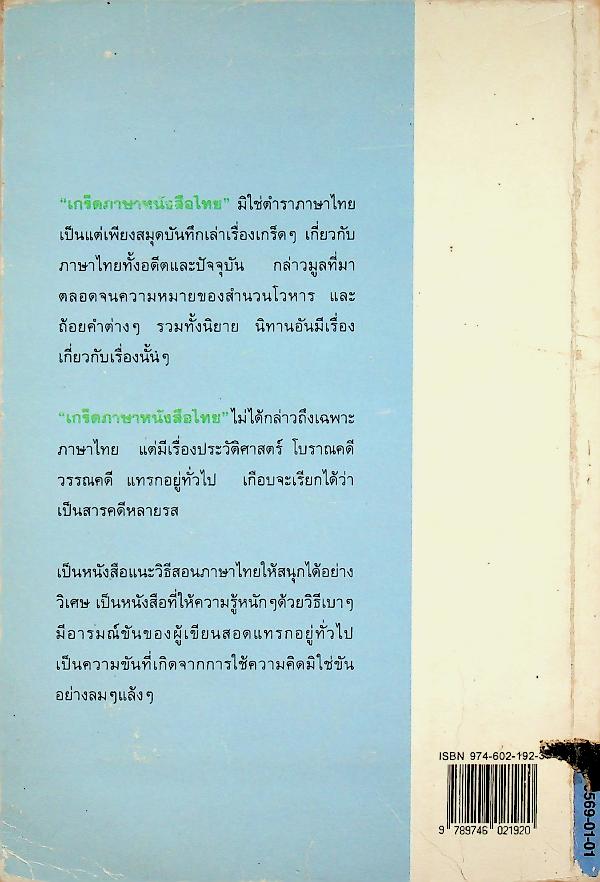 “เกร็ดภาษาหนังสือไทย” มิใช่ตำราภาษาไทย
เป็นแต่เพียงสมุดบันทึกเล่าเรื่องเกร็ดๆ เกี่ยวกับ
ภาษาไทยทั้งอดีตและปัจจุบัน กล่าวมูลที่มา
ตลอดจนความหมายของสำนวนโวหาร และ
ถ้อยคำต่างๆ รวมทั้งนิยาย นิทานอันมีเรื่อง
เกี่ยวกับเรื่องนั้นๆ
“เกร็ดภาษาหนังสือไทย” ไม่ได้กล่าวถึงเฉพาะ
ภาษาไทย แต่มีเรื่องประวัติศาสตร์ โบราณคดี
วรรณคดี แทรกอยู่ทั่วไป เกือบจะเรียกได้ว่า
เป็นสารคดีหลายรส
เป็นหนังสือแนะวิธีสอนภาษาไทยให้สนุกได้อย่าง
วิเศษ เป็นหนังสือที่ให้ความรู้หนักๆด้วยวิธีเบาๆ
มีอารมณ์ขันของผู้เขียนสอดแทรกอยู่ทั่วไป
เป็นความขันที่เกิดจากการใช้ความคิดมิใช่ขัน
อย่างลมๆแล้งๆ
ISBN 974-602-192-
9 789746 021920
569-01-01